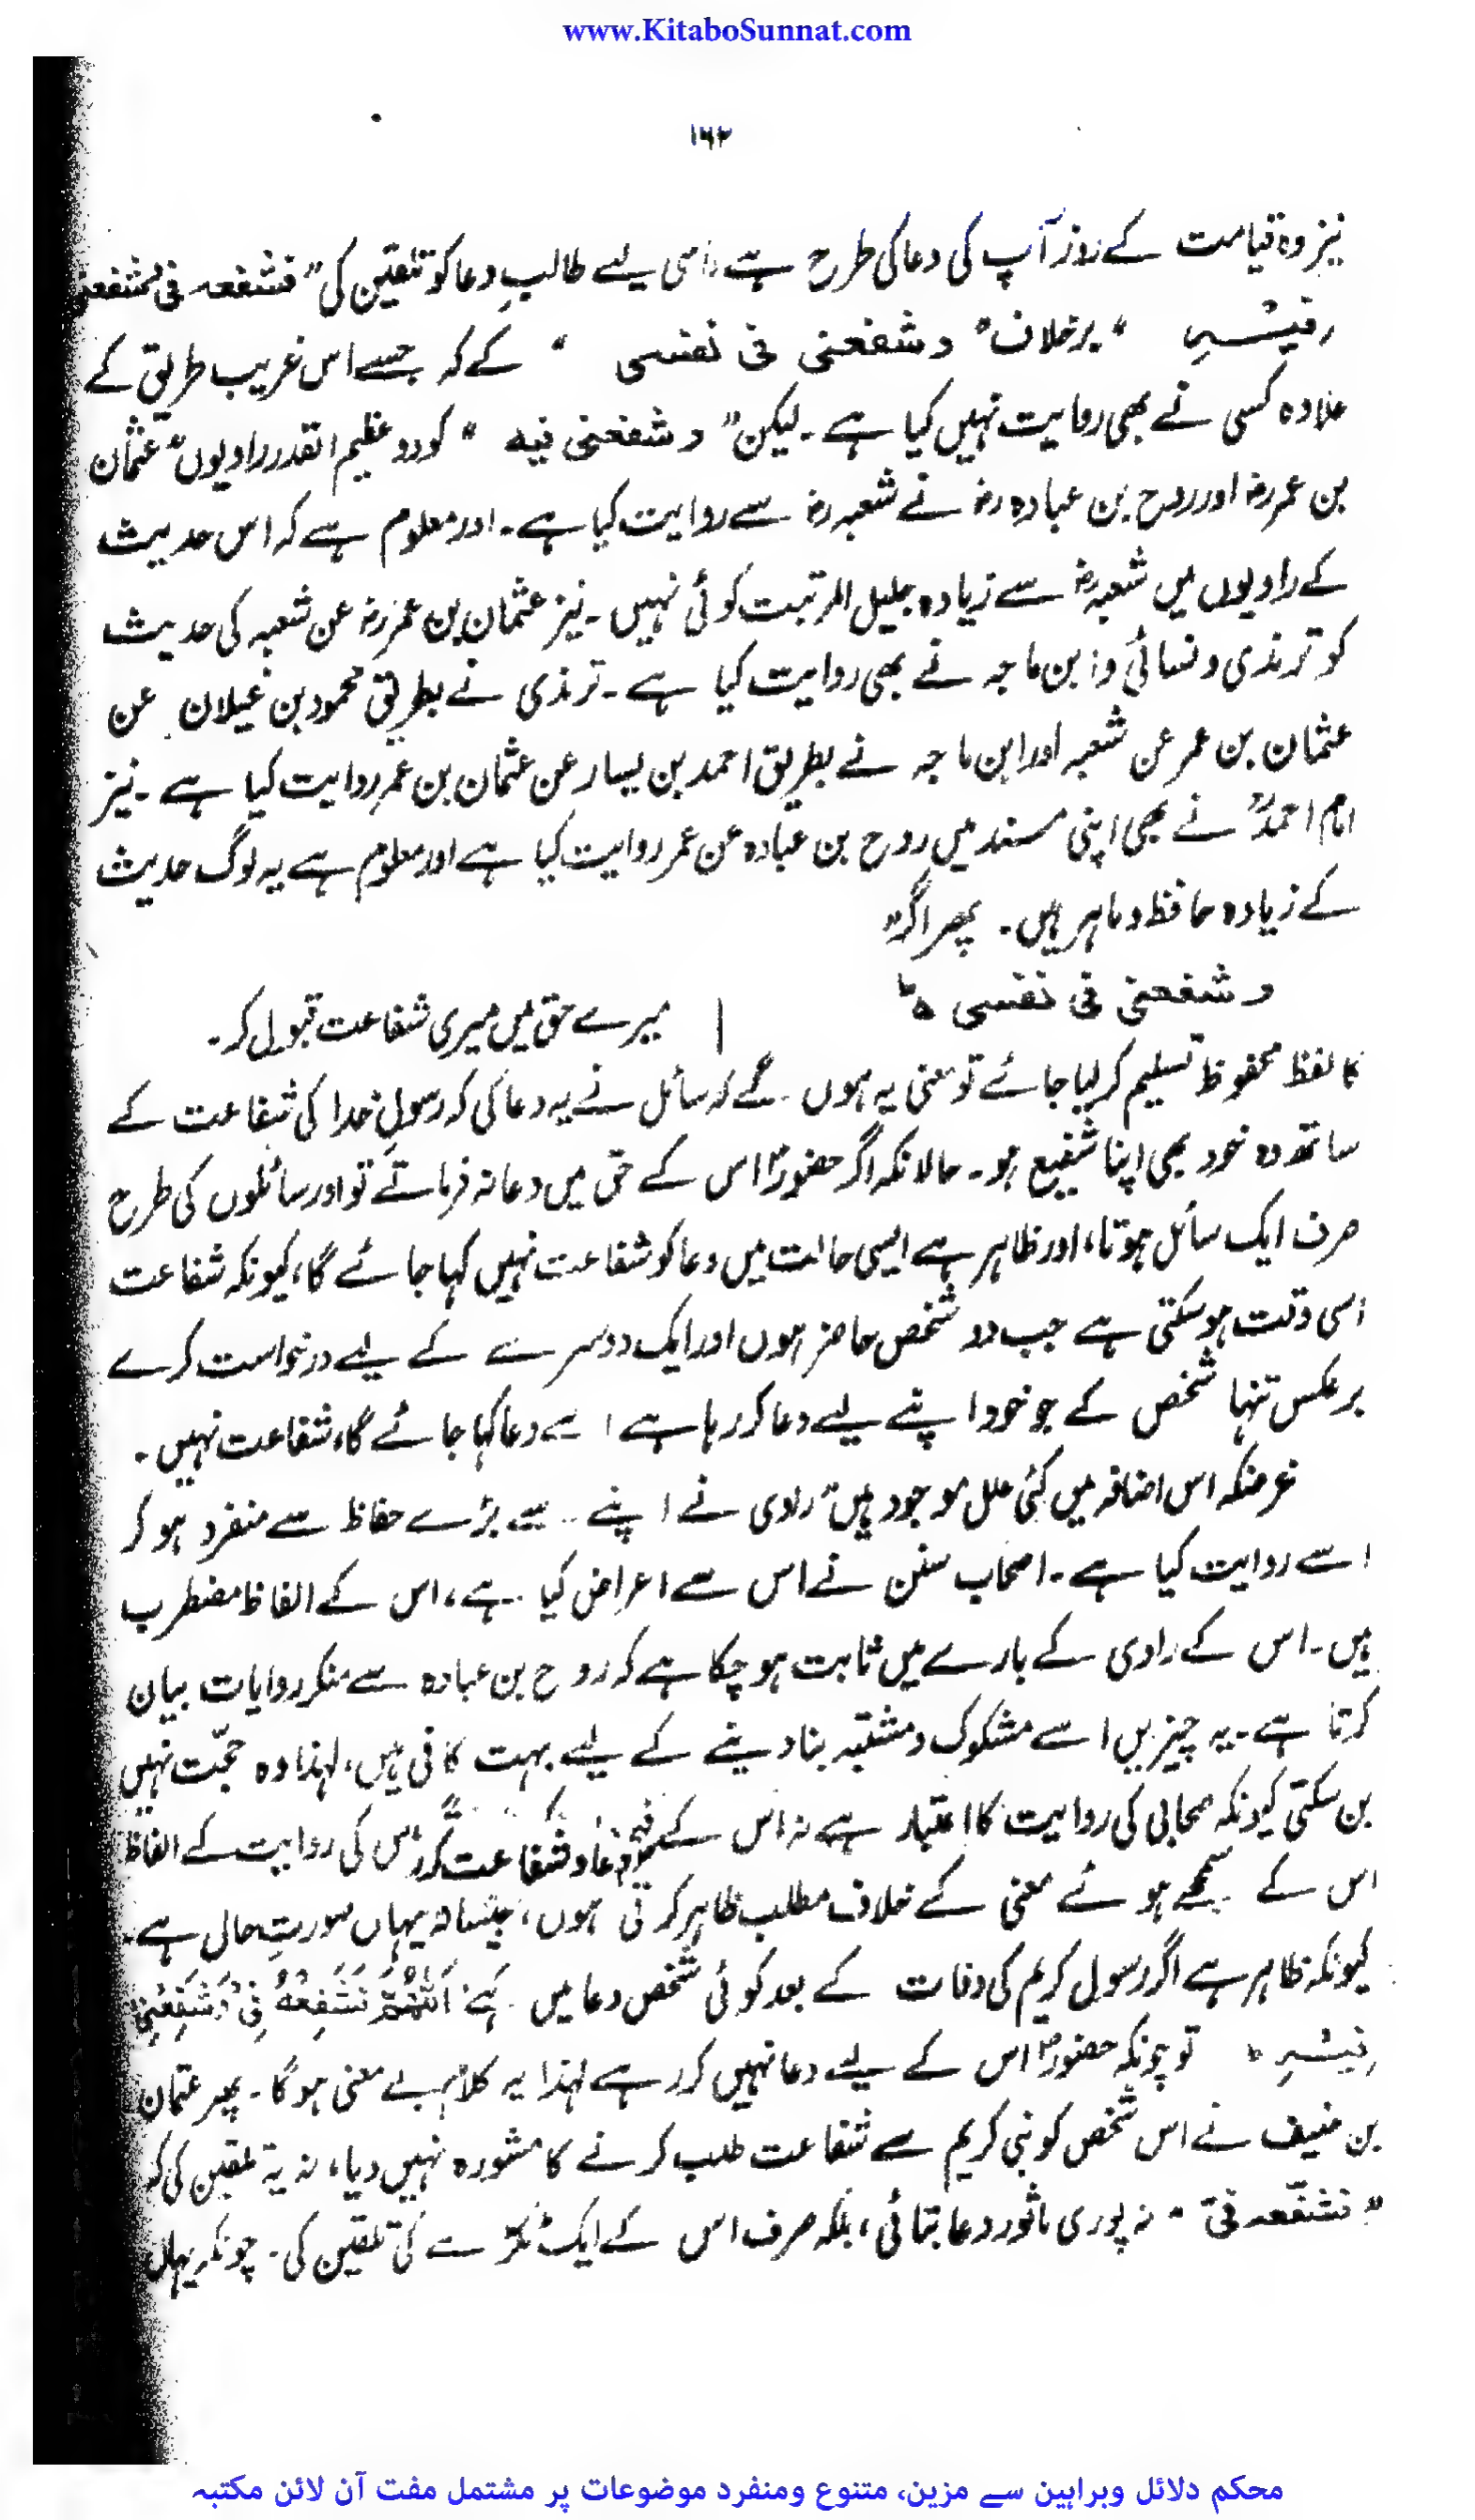 www.KitaboSunnat.com
۱۶۲
نیز وہ قیامت کے روز آپ کی دعا کی طرح ہے اسی لیے طالبِ دعا کو تلقین کی "فشفعہ فی
فیہ" برخلاف "وشفعنی فی نفسی" کے کہ جسے اس غریب طریق کے
علاوہ کسی نے بھی روایت نہیں کیا ہے۔ لیکن "وشفعنی فیہ" کو دو عظیم القدر راویوں "عثمان
بن عمرؒ اور روح بن عبادہؒ نے شعبہؒ سے روایت کیا ہے۔ اور معلوم ہے کہ اس حدیث
کے راویوں میں شعبہؒ سے زیادہ جلیل المرتبت کوئی نہیں۔ نیز عثمان بن عمرؒ عن شعبہ کی حدیث
کو ترمذی و نسائی و ابن ماجہ نے بھی روایت کیا ہے۔ ترمذی نے بطریق محمود بن غیلان عن
عثمان بن عمر عن شعبہ اور ابن ماجہ نے بطریق احمد بن یسار عن عثمان بن عمر روایت کیا ہے۔ نیز
امام احمدؒ نے بھی اپنی مسند میں روح بن عبادہ عن عمر روایت کیا ہے اور معلوم ہے یہ لوگ حدیث
کے زیادہ حافظ و ماہر ہیں۔ پھر اگر"
وشفعنی فی نفسی ہ" | میرے حق میں میری شفاعت قبول کر۔
کا لفظ محفوظ تسلیم کر لیا جائے تو معنی یہ ہوں گے کہ سائل نے یہ دعا کی کہ رسولِ خدا کی شفاعت کے
ساتھ وہ خود بھی اپنا شفیع ہو۔ حالانکہ اگر حضورؐ اس کے حق میں دعا نہ فرماتے تو اور سائلوں کی طرح
صرف ایک سائل ہوتا، اور ظاہر ہے ایسی حالت میں دعا کو شفاعت نہیں کہا جائے گا، کیونکہ شفاعت
اسی وقت ہو سکتی ہے جب دو شخص حاضر ہوں اور ایک دوسرے کے لیے درخواست کرے
برعکس تنہا شخص کے جو خود اپنے لیے دعا کر رہا ہے اسے دعا کہا جائے گا، شفاعت نہیں۔
غرضکہ اس اضافہ میں کئی علل موجود ہیں" راوی نے اپنے سے بڑے حفاظ سے منفرد ہو کر
اسے روایت کیا ہے۔ اصحاب سنن نے اس سے اعراض کیا ہے، اس کے الفاظ مضطرب
ہیں۔ اس کے راوی کے بارے میں ثابت ہو چکا ہے کہ روح بن عبادہ سے منکر روایات بیان
کرتا ہے۔ یہ چیزیں اسے مشکوک و مشتبہ بنا دینے کے لیے بہت کافی ہیں، لہٰذا وہ حجّت نہیں
بن سکتی کیونکہ صحابی کی روایت کا اعتبار ہے نہ اس کے اس کی روایت کے الفاظ
اس کے سمجھے ہوئے معنی کے خلاف مطلب ظاہر کرتی ہوں، جیسا کہ یہاں صورتِ حال ہے۔
کیونکہ ظاہر ہے اگر رسول کریم کی وفات کے بعد کوئی شخص دعا میں کہے اَللّٰھُمَّ فَشَفِّعْهُ فِیَّ وَشَفِّعْنِیْ
فِیْہِ ہ تو چونکہ حضورؐ اس کے لیے دعا نہیں کر رہے لہٰذا یہ کلام بے معنی ہوگا۔ پھر عثمان
بن حنیف نے اس شخص کو نبی کریم سے شفاعت طلب کرنے کا مشورہ نہیں دیا، نہ یہ تلقین کی کہ
"فشفّعہ فیّ" نہ پوری ماثور دعا بتائی، بلکہ صرف اس کے ایک ٹکڑے کی تلقین کی۔ چونکہ یہاں
محکم دلائل وبراہین سے مزین، متنوع ومنفرد موضوعات پر مشتمل مفت آن لائن مکتبہ